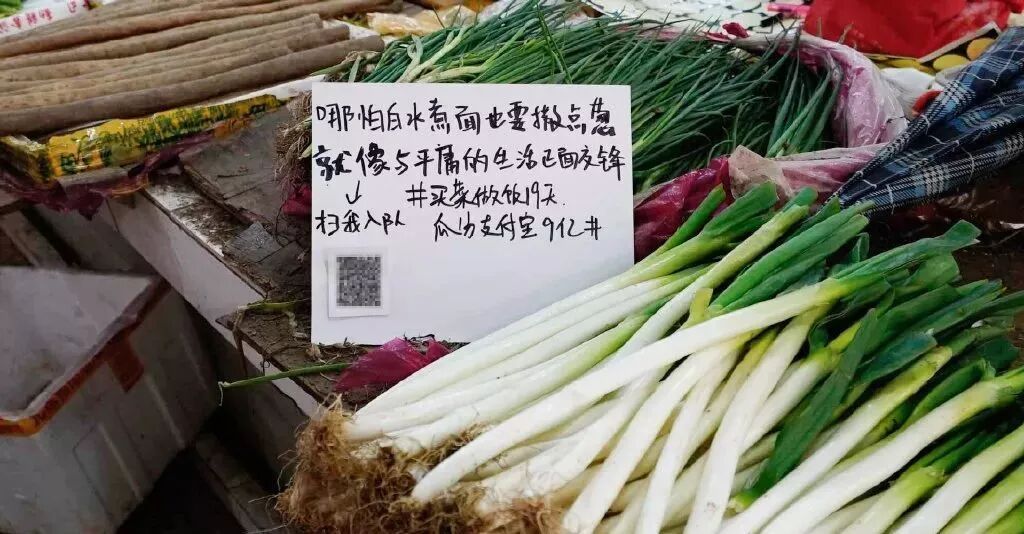 哪怕白水煮面也要撒点葱
就像与平庸的生活正面交锋
#买菜做饭19天
扫我入队
瓜分支付宝9亿#